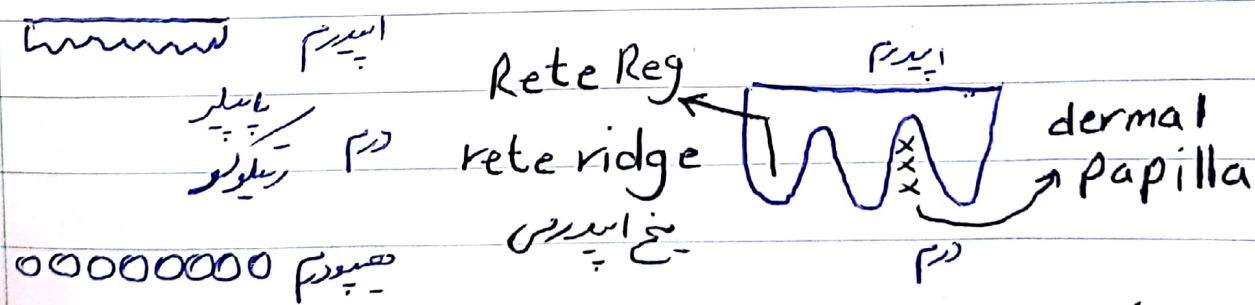 اپیدرم
پاپیلر
درم
رتیکولر
هیپودرم
Rete Reg
rete ridge
میخ اپیدرمی
اپیدرم
dermal
papilla
درم